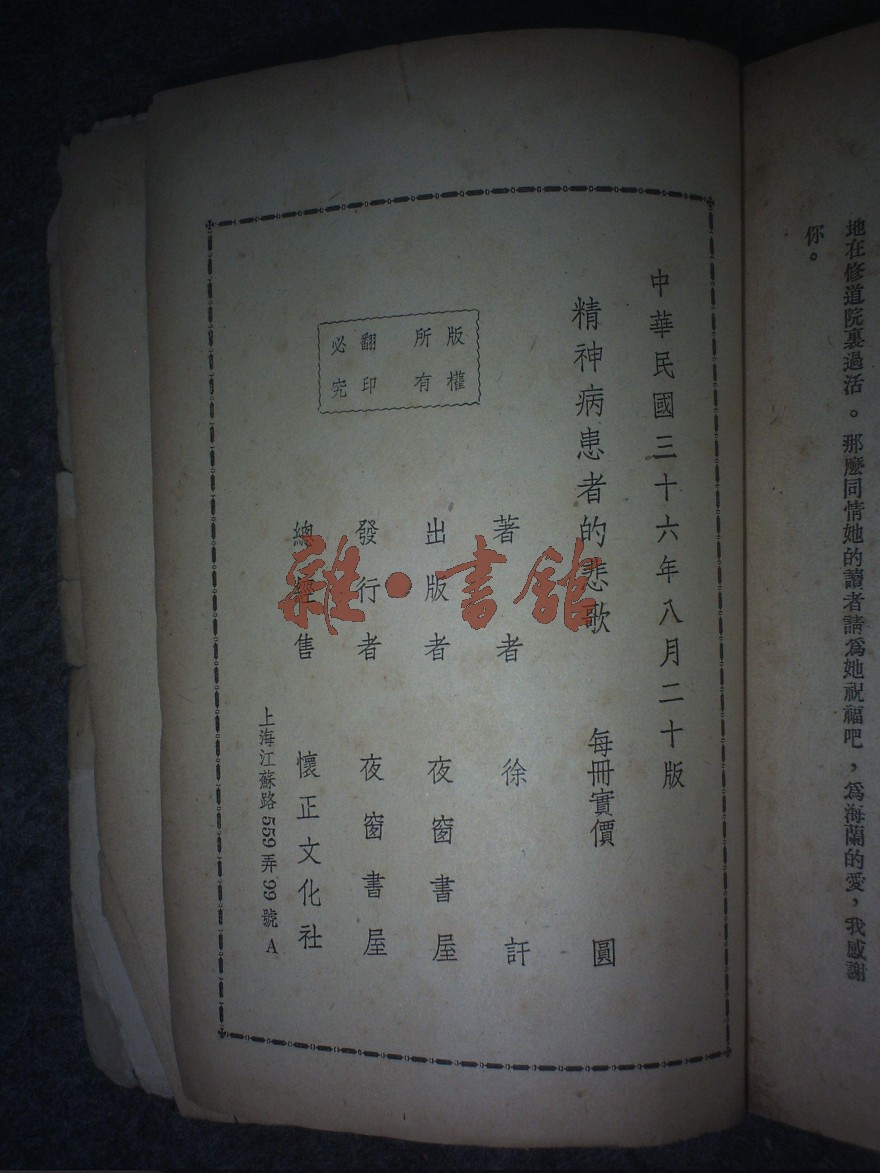 地在修道院裏過活。那麼同情她的讀者請爲她祝福吧，爲海蘭的愛，我感謝
你。
中華民國三十六年八月二十版
精神病患者的悲歌 每冊實價 圓
著者 徐訏
出版者 夜窗書屋
發行者 夜窗書屋
總經售 懷正文化社
上海江蘇路559弄99號A
版權
所有
翻印
必究
雜·書館